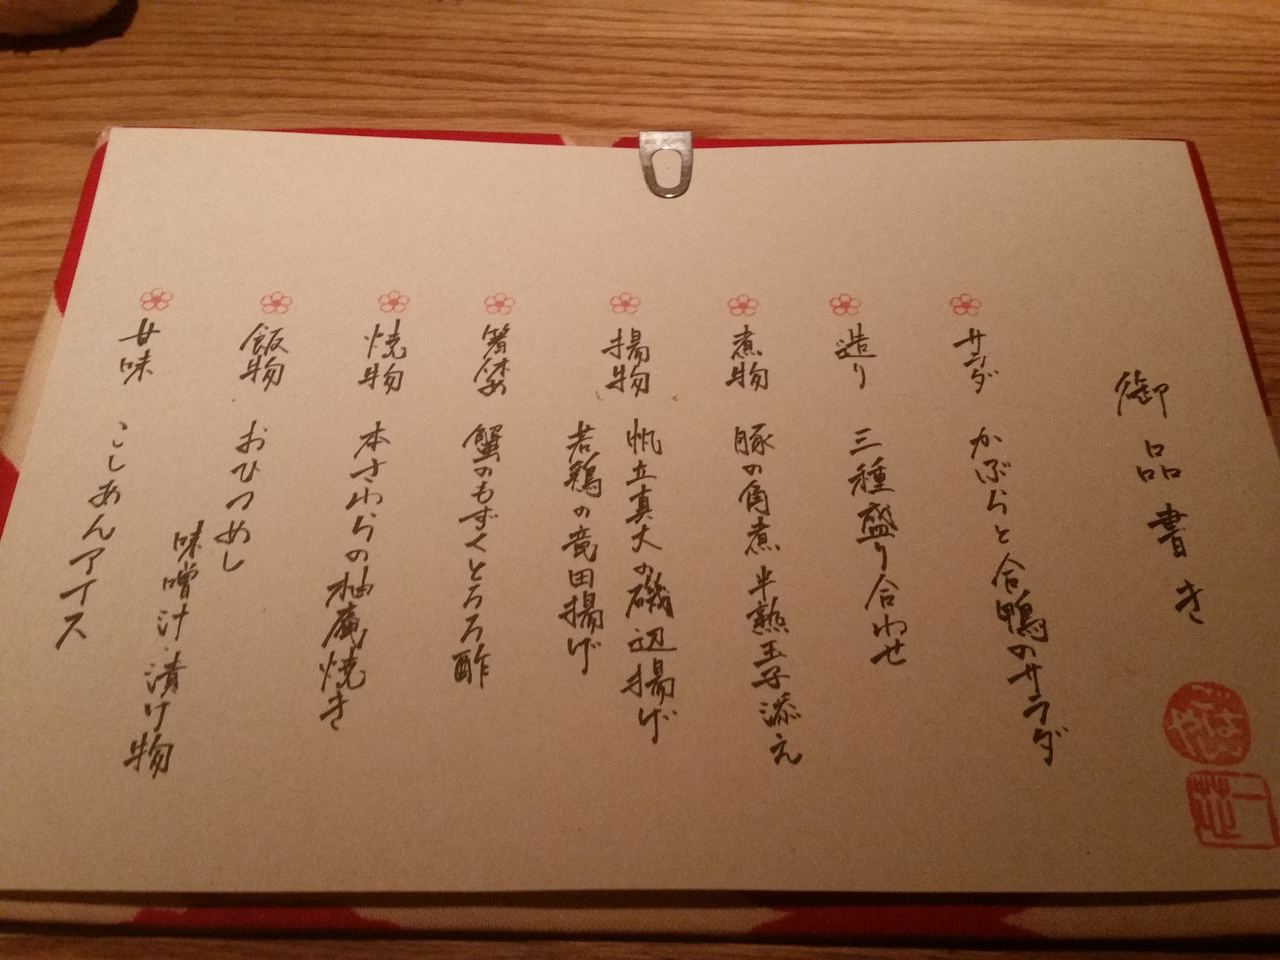 御品書き
サラダ かぶらと合鴨のサラダ
造り 三種盛り合わせ
煮物 豚の角煮 半熟玉子添え
揚物 帆立真丈の磯辺揚げ
若鶏の竜田揚げ
箸休め 蟹のもずくとろろ酢
焼物 本さわらの柚庵焼き
飯物 おひつめし
味噌汁 漬け物
甘味 こしあんアイス